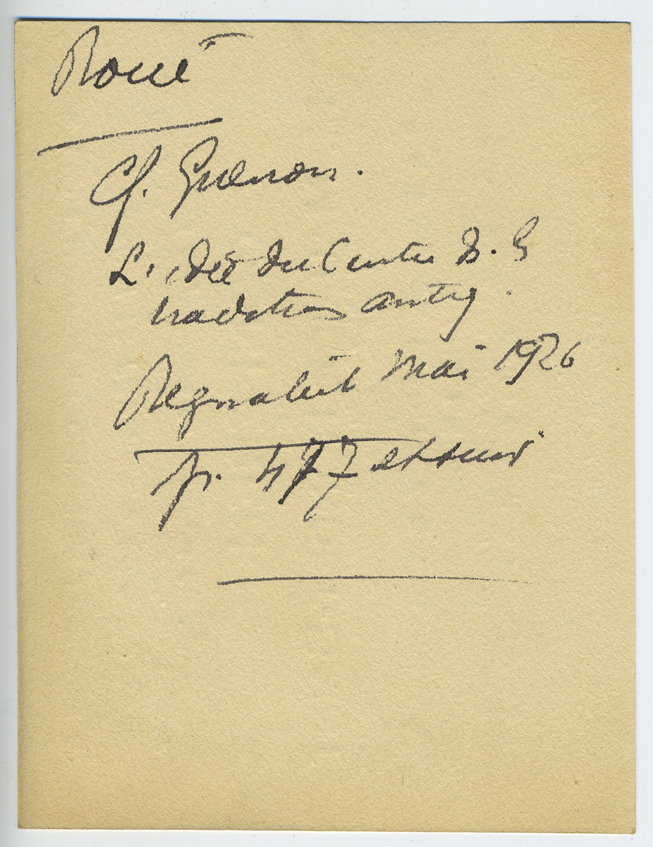 Roue
Cf. Guénon.
L'idée du Centre D. l
traditions antiq.
Regnabit Mai 1926
p. 477 et suiv